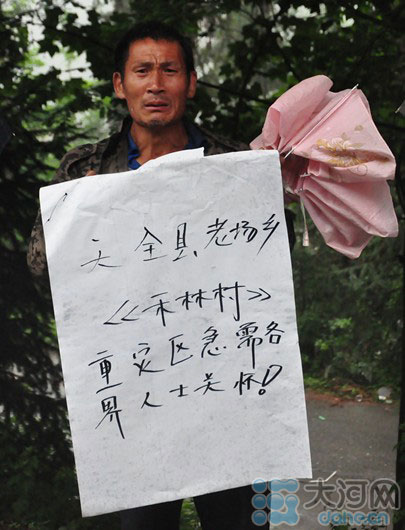 天全县老场乡
《禾林村》
重灾区急需各
界人士关怀!
大河网
dahe.cn